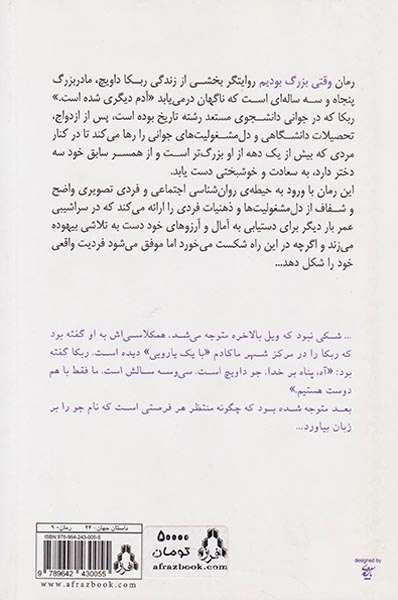 رمان وقتی بزرگ بودیم روایتگر بخشی از زندگی ربکا داویچ، مادربزرگ
پنجاه و سه ساله‌ای است که ناگهان درمی‌یابد «آدم دیگری شده است.»
ربکا که در جوانی دانشجوی مستعد رشته تاریخ بوده است، پس از ازدواج،
تحصیلات دانشگاهی و دل‌مشغولیت‌های جوانی را رها می‌کند تا در کنار
مردی که بیش از یک دهه از او بزرگ‌تر است و از همسر سابق خود سه
دختر دارد، به سعادت و خوشبختی دست یابد.
این رمان با ورود به حیطه‌ی روان‌شناسی اجتماعی و فردی تصویری واضح
و شفاف از دل‌مشغولیت‌ها و ذهنیات فردی را ارائه می‌کند که در سراشیبی
عمر بار دیگر برای دستیابی به آمال و آرزوهای خود دست به تلاشی بیهوده
می‌زند و اگرچه در این راه شکست می‌خورد اما موفق می‌شود فردیت واقعی
خود را شکل دهد...
... شکی نبود که ویل بالاخره متوجه می‌شد. همکلاسی‌اش به او گفته بود
که ربکا را در مرکز شهر ماکادم «با یک یارویی» دیده است. ربکا گفته
بود: «آه، پناه بر خدا. جو داویچ است. سی‌وسه سالش است. ما فقط با هم
دوست هستیم.»
بعد متوجه شده بود که چگونه منتظر هر فرصتی است که نام جو را بر
زبان بیاورد...
داستان جهان- ۲۲ رمان- ۹
ISBN: 978-964-243-005-5
9 789642 430055
۵۰۰۰۰
تومان
افراز
afrazbook.com
afrazbook.com
designed by